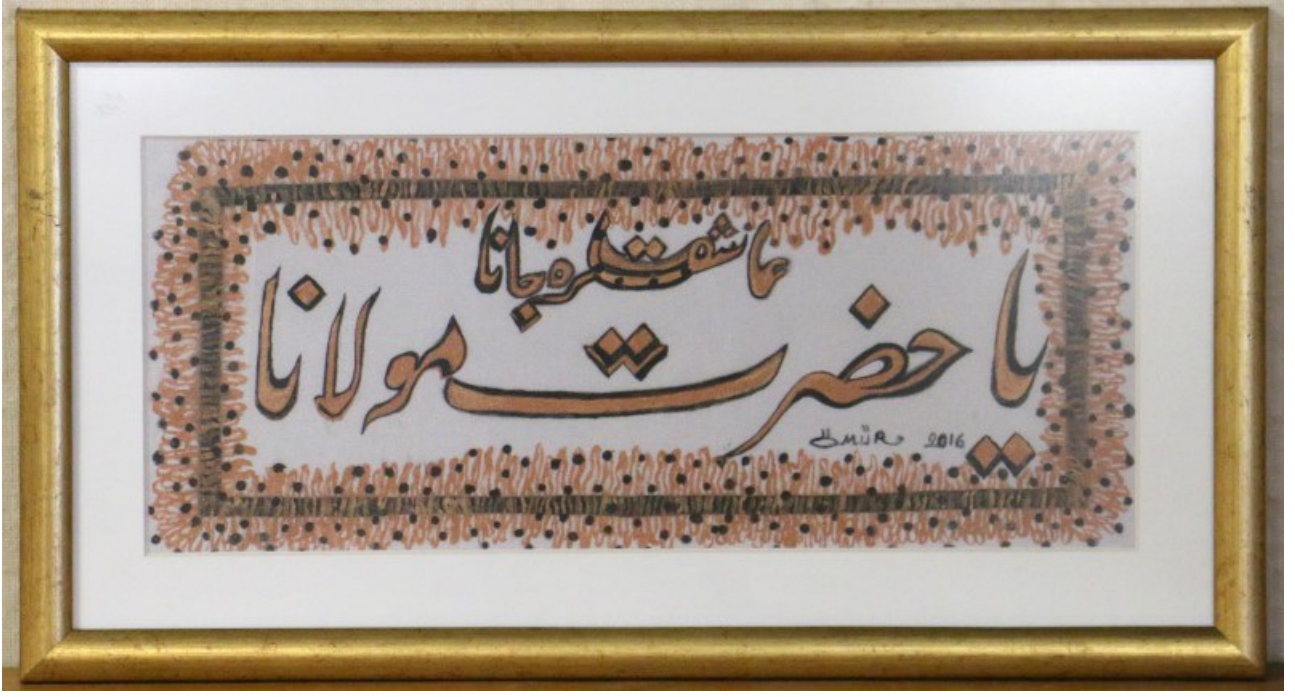 عاشقلره جانا
يا حضرت مولانا
ÖMÜR 2016